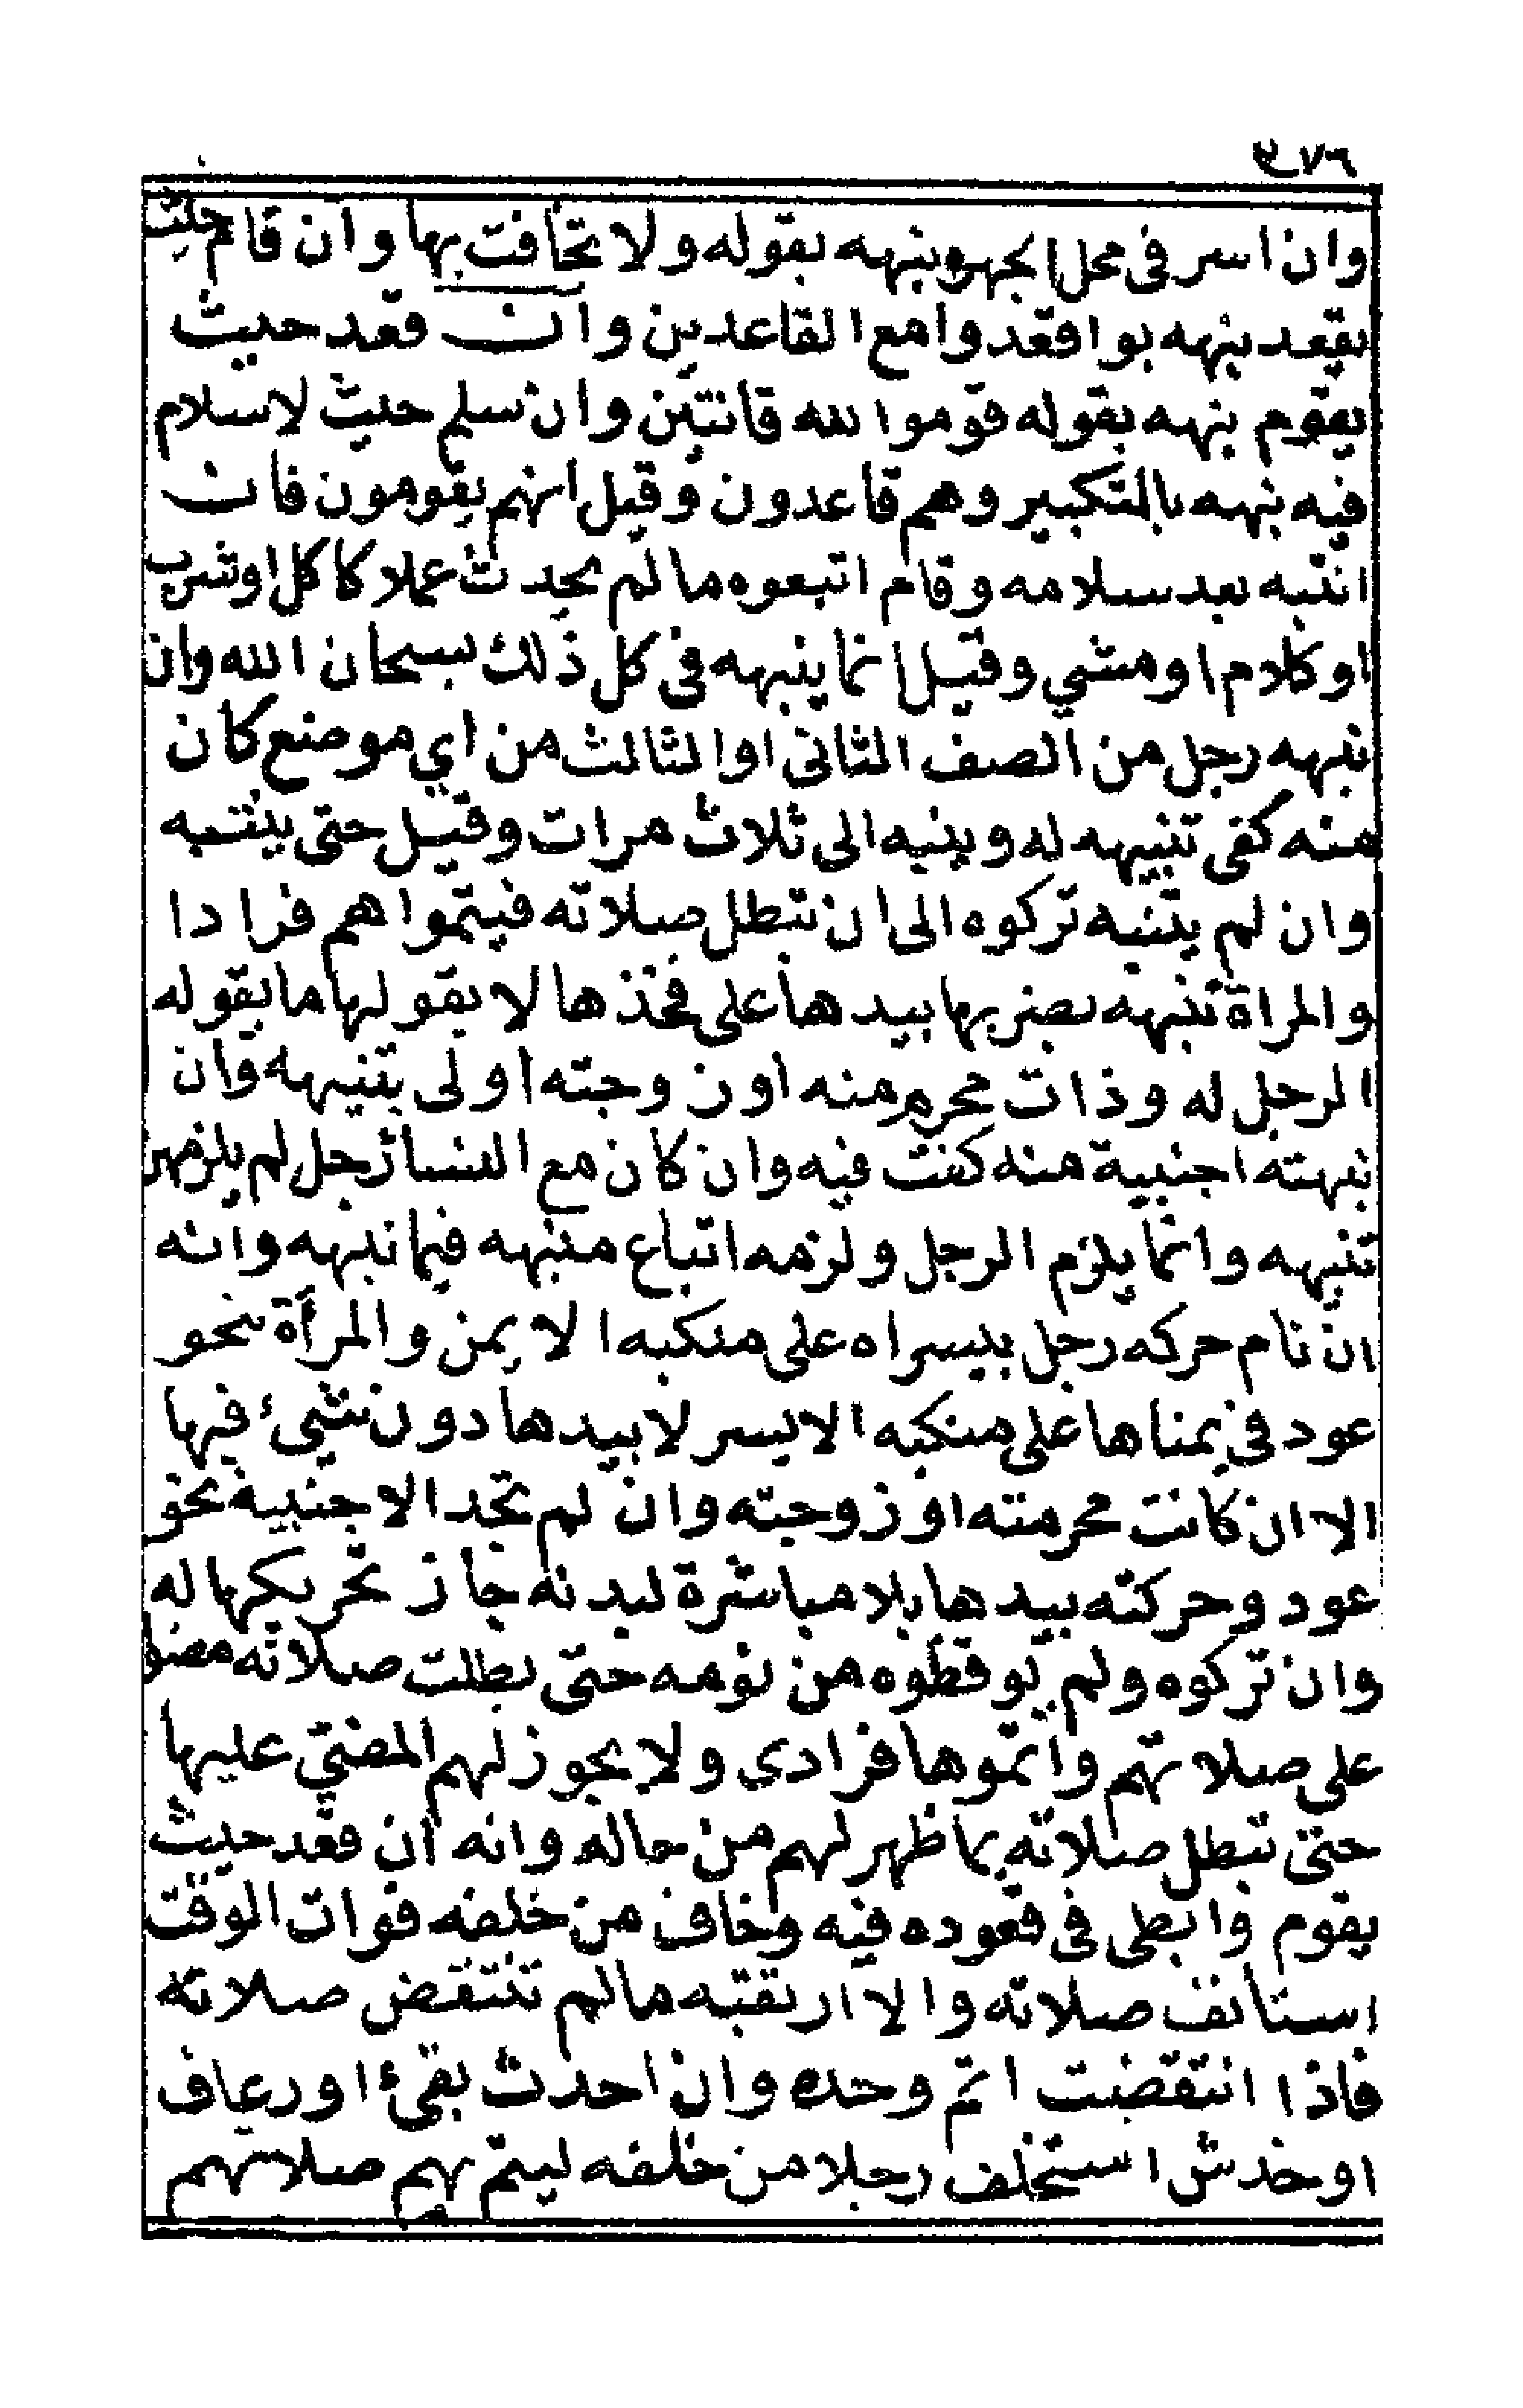 ٣٧٦
وان اسر فى محل الجهر وينبهه بقوله ولا تخافت بها وان قام حيث
يقعد ينبهه بو اقعدوا مع القاعدين وان قعد حيث
يقوم ينبهه بقوله قوموا لله قانتين وان سلم حيث لا سلام
فيه نبهه بالتكبير وهم قاعدون وقيل انهم يقومون فان
انتبه بعد سلامه وقام اتبعوه ما لم يحدث عملا كاكل او شرب
او كلام او مشي وقيل انما ينبهه فى كل ذلك بسبحان الله وان
نبهه رجل من الصف الثانى او الثالث من اي موضع كان
منه كفى تنبيهه له وينبه الى ثلاث مرات وقيل حتى ينتبه
وان لم يتنبه تركوه الى ان تبطل صلاته فيتموا هم فرادا
والمراة تنبهه بضربها بيدها على فخذها لا بقولها ما يقوله
الرجل له وذات محرم منه او زوجته اولى بتنبيهه وان
نبهته اجنبية منه كفت فيه وان كان مع النساء رجل لم يلزمهن
تنبيهه وانما يلزم الرجل ولزمه اتباع منبهه فيما نبهه وانه
ان نام حركه رجل بيسراه على منكبه الايمن والمرأة بنحو
عود فى يمناها على منكبه الايسر لا بيدها دون شيء فيها
الا ان كانت محرمته او زوجته وان لم تجد الاجنبية نحو
عود وحركته بيدها بلا مباشرة لبدنه جاز تحريكها له
وان تركوه ولم يوقظوه من نومه حتى بطلت صلاته مضوا
على صلاتهم واتموها فرادي ولا يجوز لهم المضي عليها
حتى تبطل صلاته بما ظهر لهم من حاله وانه ان قعد حيث
يقوم وابطى فى قعوده فيه وخاف من خلفه فوات الوقت
استانف صلاته والا ارتقبه ما لم تنتقض صلاته
فاذا انتقضت اتم وحده وان احدث بقيء او رعاف
او خدش استخلف رجلا من خلفه ليتم بهم صلاتهم